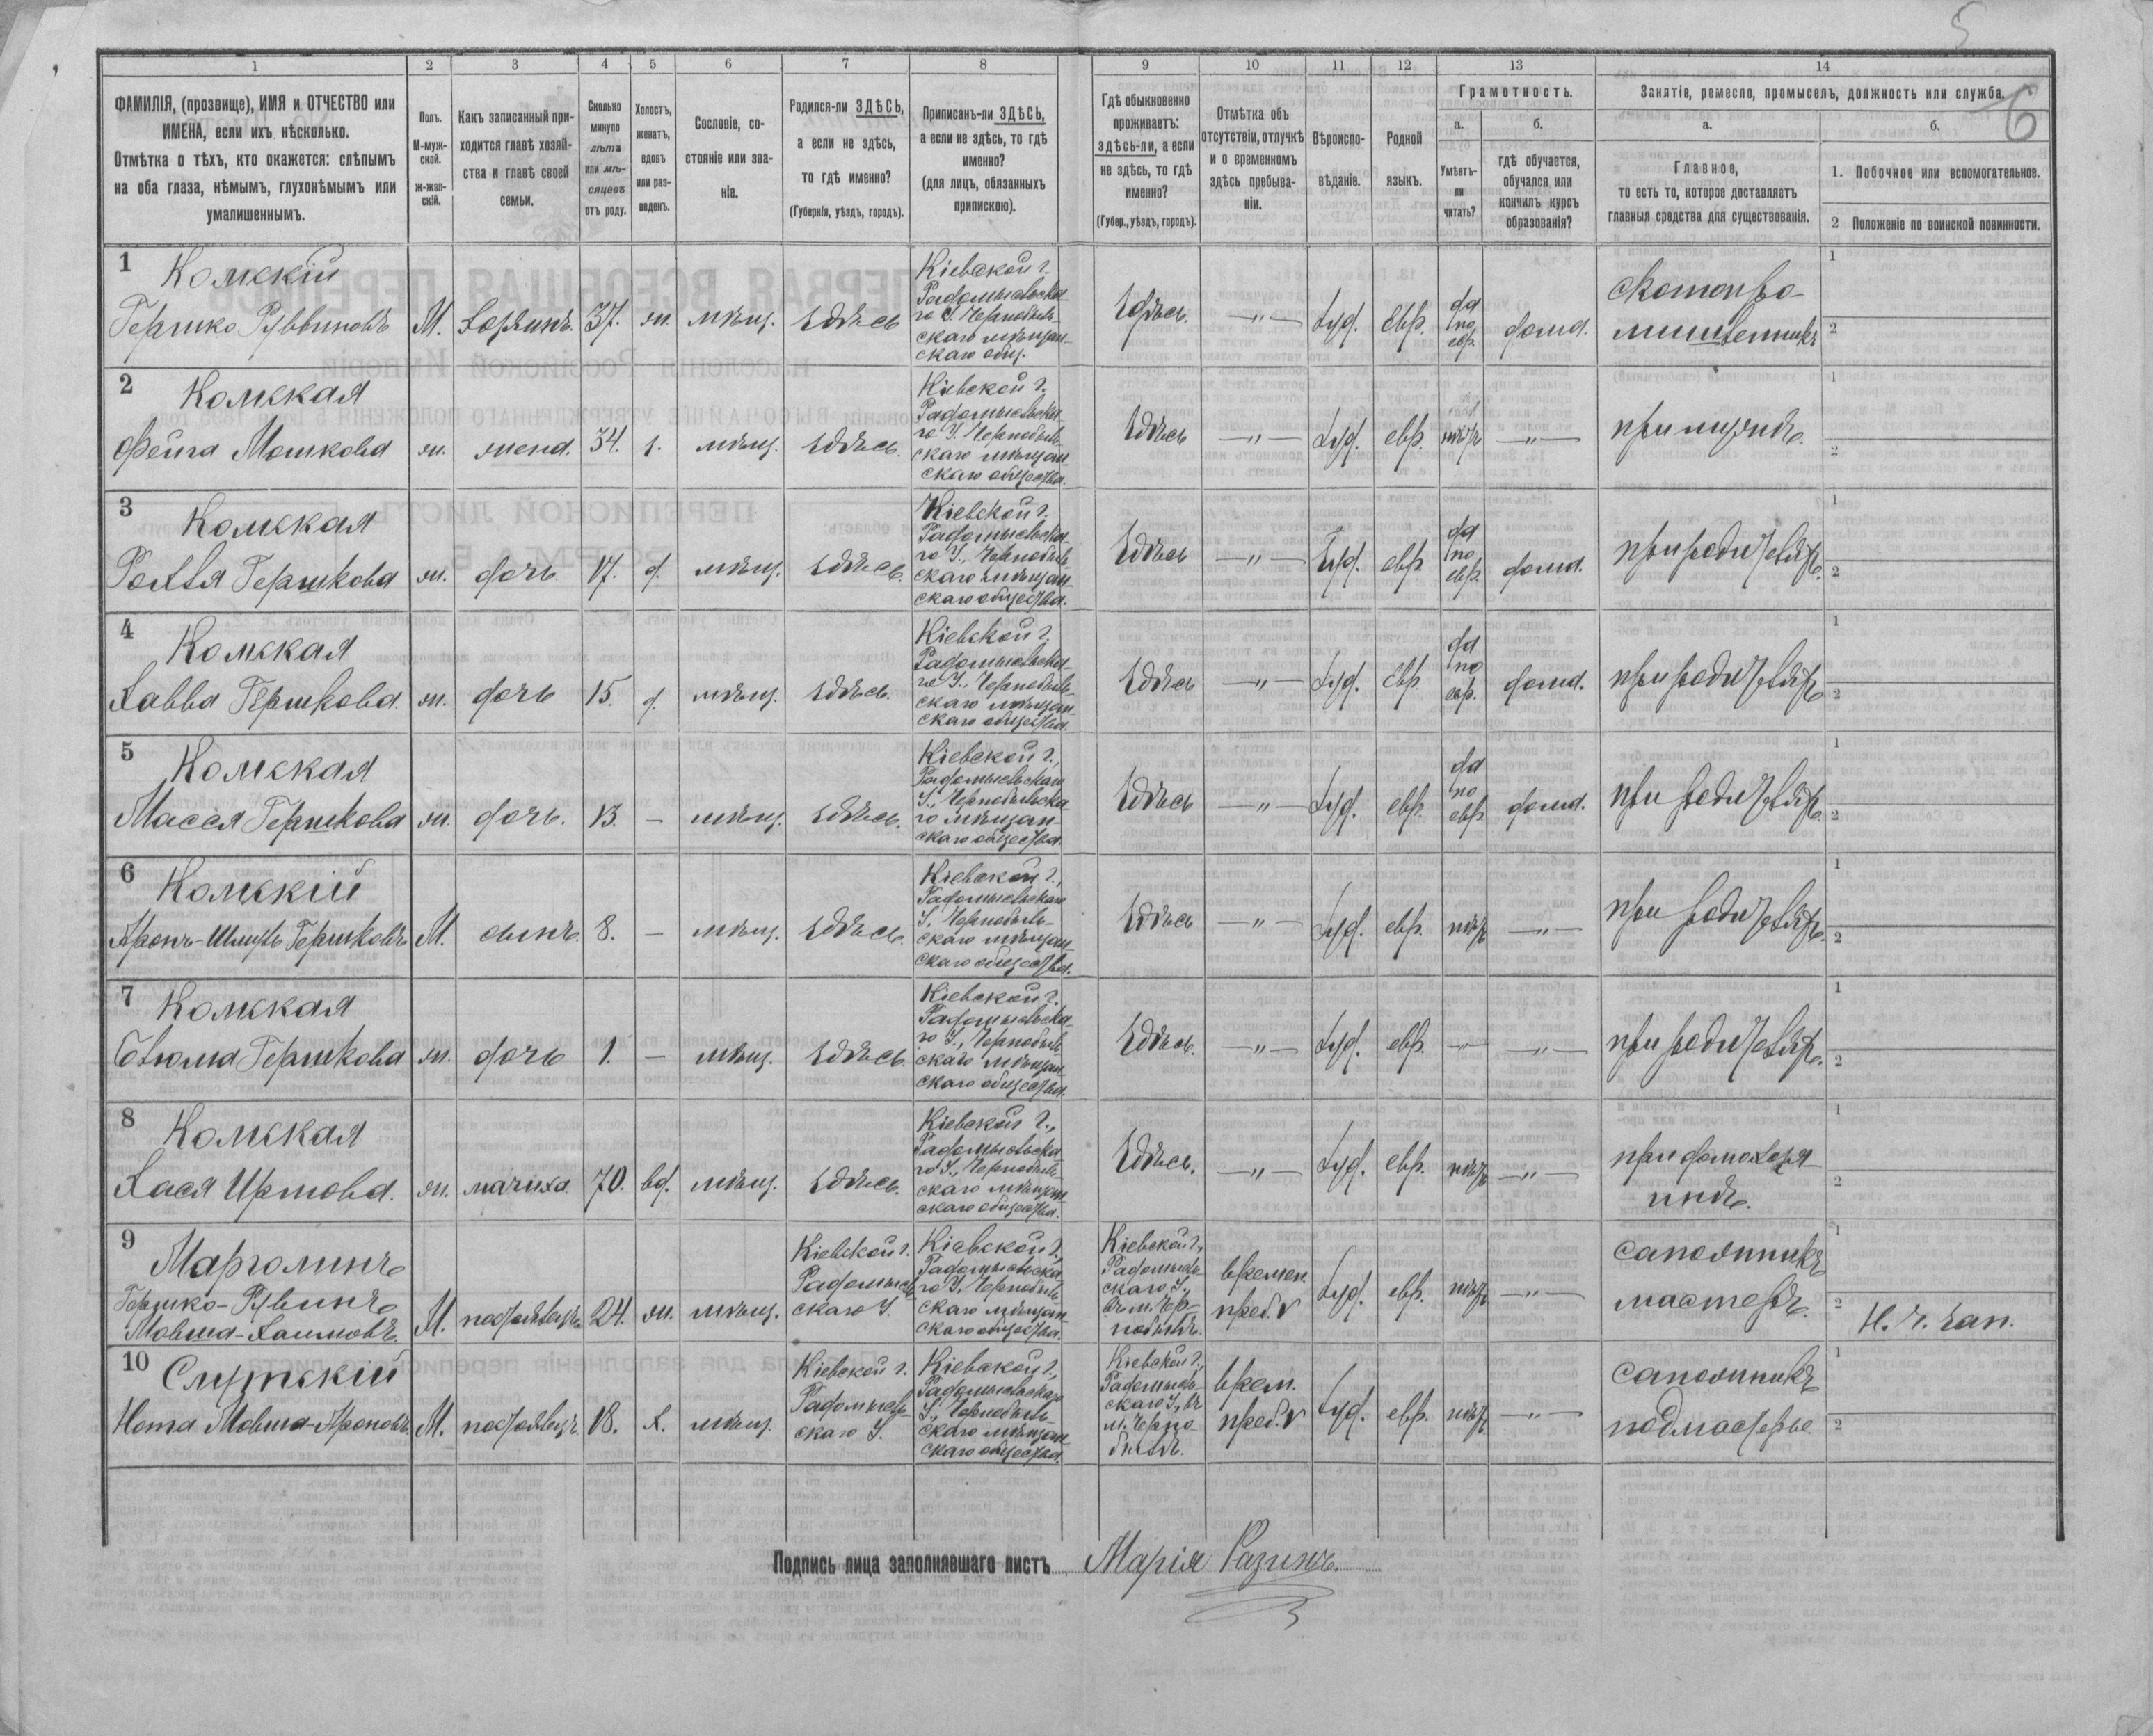 5
6
1
2
3
4
5
6
7
8
9
10
11
12
13
14
ФАМИЛІЯ, (прозвище), ИМЯ и ОТЧЕСТВО или
ИМЕНА, если ихъ нѣсколько.
Отмѣтка о тѣхъ, кто окажется: слѣпымъ
на оба глаза, нѣмымъ, глухонѣмымъ или
умалишеннымъ.
Полъ.
М-муж-
ской.
ж-жен-
скій.
Какъ записанный при-
ходится главѣ хозяй-
ства и главѣ своей
семьи.
Сколько
минуло
лѣтъ
или мѣ-
сяцевъ
отъ роду.
Холостъ,
женатъ,
вдовъ
или раз-
веденъ.
Сословіе, со-
стояніе или зва-
ніе.
Родился-ли ЗДѢСЬ,
а если не здѣсь,
то гдѣ именно?
(Губернія, уѣздъ, городъ).
Приписанъ-ли ЗДѢСЬ,
а если не здѣсь, то гдѣ
именно?
(для лицъ, обязанныхъ
припискою).
Гдѣ обыкновенно
проживаетъ:
здѣсь-ли, а если
не здѣсь, то гдѣ
именно?
(Губер., уѣздъ, городъ).
Отмѣтка объ
отсутствіи, отлучкѣ
и о временномъ
здѣсь пребыва-
ніи.
Вѣроиспо-
вѣданіе.
Родной
языкъ.
Грамотность.
а.
Умѣетъ-
ли
читать?
б.
гдѣ обучается,
обучался или
кончилъ курсъ
образованія?
Занятіе, ремесло, промыселъ, должность или служба.
а.
Главное,
то есть то, которое доставляетъ
главныя средства для существованія.
б.
1. Побочное или вспомогательное.
2 Положеніе по воинской повинности.
1 Комскій
Гершко Рувиновъ М. хозяинъ. 37. ж. мѣщ. здѣсь
Кіевской г.
Радомысльска-
го У. Чернобыль-
скаго мѣщан-
скаго общ.
здѣсь. —"— Іуд. евр.
да
по
евр.
дома.
скотопро-
мышленникъ
1
2
2 Комская
Фейга Мошкова ж. жена. 34. з. мѣщ. здѣсь.
Кіевской г.
Радомысльска-
го У. Чернобыль-
скаго мѣщан-
скаго общества.
здѣсь —"— Іуд. евр. нѣтъ —"—
при мужѣ.
1
2
3 Комская
Рохля Гершкова ж. дочь. 17. д. мѣщ. здѣсь.
Кіевской г.
Радомысльска-
го У., Чернобыль-
скаго мѣщан-
скаго общества.
здѣсь —"— Іуд. евр.
да
по
евр.
дома.
при родителяхъ.
1
2
4 Комская
Хавва Гершкова. ж. дочь 15. д. мѣщ. здѣсь.
Кіевской г.
Радомысльска-
го У. Чернобыль-
скаго мѣщан-
скаго общества.
здѣсь —"— Іуд. евр.
да
по
евр.
дома.
при родителяхъ
1
2
5 Комская
Масся Гершкова ж. дочь. 13. — мѣщ. здѣсь.
Кіевской г.,
Радомысльскаго
У., Чернобыльска
го мѣщан-
скаго общества.
здѣсь —"— Іуд. евр.
да
по
евр.
дома.
при родителяхъ.
1
2
6 Комскій
Аронъ-Шмуль Гершковъ М. сынъ. 8. — мѣщ. здѣсь.
Кіевской г.,
Радомысльскаго
У., Чернобыль-
скаго мѣщан-
скаго общества.
здѣсь —"— Іуд. евр. нѣтъ —"—
при родителяхъ.
1
2
7 Комская
Гершкова ж. дочь 1. — мѣщ. здѣсь.
Кіевской г.,
Радомысльска-
го У., Чернобыль-
скаго мѣщан-
скаго общества.
здѣсь. —"— Іуд. евр. —"— —"—
при родителяхъ.
1
2
8 Комская
Хася Иртова. ж. мачиха. 70. вд. мѣщ. здѣсь.
Кіевской г.,
Радомысльска-
го У., Чернобыль-
скаго мѣщан-
скаго общества.
здѣсь. —"— Іуд. евр. нѣтъ —"—
при домохозя-
инѣ.
1
2
9 Марголинъ
Гершко-Рувинъ
Мовша-Хаимовъ. М. постоялецъ 24. ж. мѣщ.
Кіевской г.
Радомысль-
скаго У.
Кіевской г.,
Радомысльска-
го У. Чернобыль-
скаго мѣщан-
скаго общества.
Кіевской г.,
Радомысль-
скаго У.
въ м. Чер-
нобылѣ.
времен.
преб. V
Іуд. евр. нѣтъ —"—
сапожникъ
мастеръ.
1
2 Н. ч. зап.
10 Слуткій
Нота Мовша-Ароновъ. М. постоялецъ. 18. х. мѣщ.
Кіевской г.
Радомысль-
скаго У.
Кіевской г.,
Радомысльскаго
У., Чернобыль-
скаго мѣщан-
скаго общества.
Кіевской г.,
Радомысль-
скаго У., въ
м. Черно-
былѣ.
врем.
преб. V
Іуд. евр. нѣтъ. —"—
сапожникъ
подмастерье.
1
2
Подпись лица заполнявшаго листъ Марія Разинъ.